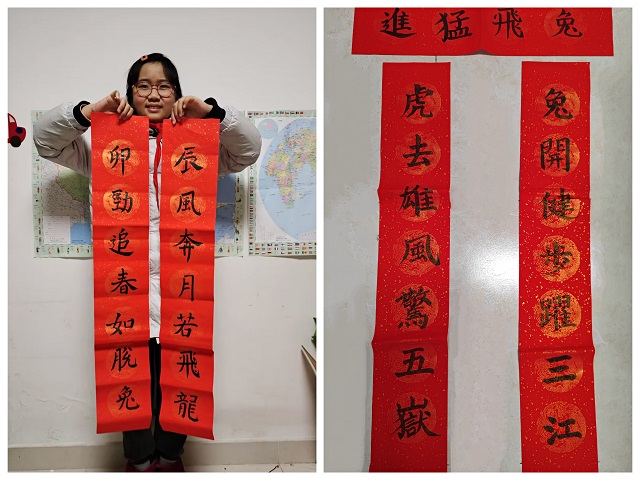 辰風奔月若飛龍
卯勁追春如脫兔
兔飛猛進
兔開健步躍三江
虎去雄風驚五嶽